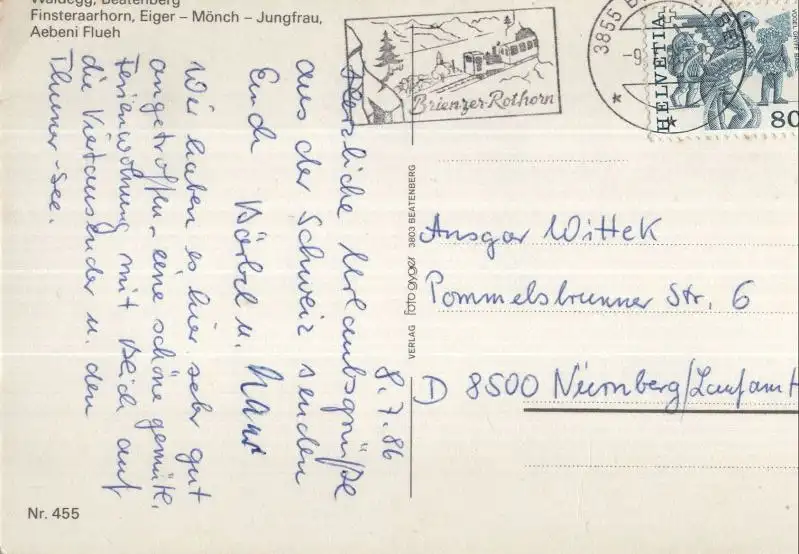 Waldegg, Beatenberg
Finsteraarhorn, Eiger – Mönch – Jungfrau,
Aebeni Flueh
Brienzer-Rothorn
3855 B
HELVETIA
80
8.7.86
Herzliche Urlaubsgrüße
aus der Schweiz senden
Euch Bärbel u. Hans
Wir haben es hier sehr gut
angetroffen, eine schöne gemütl.
Ferienwohnung mit Blick auf
die Viertausender u. den
Thuner-See.
VERLAG foto gyger 3803 BEATENBERG
Ansgar Wittek
Pommelsbrunner Str. 6
D 8500 Nürnberg/Laufamh
Nr. 455